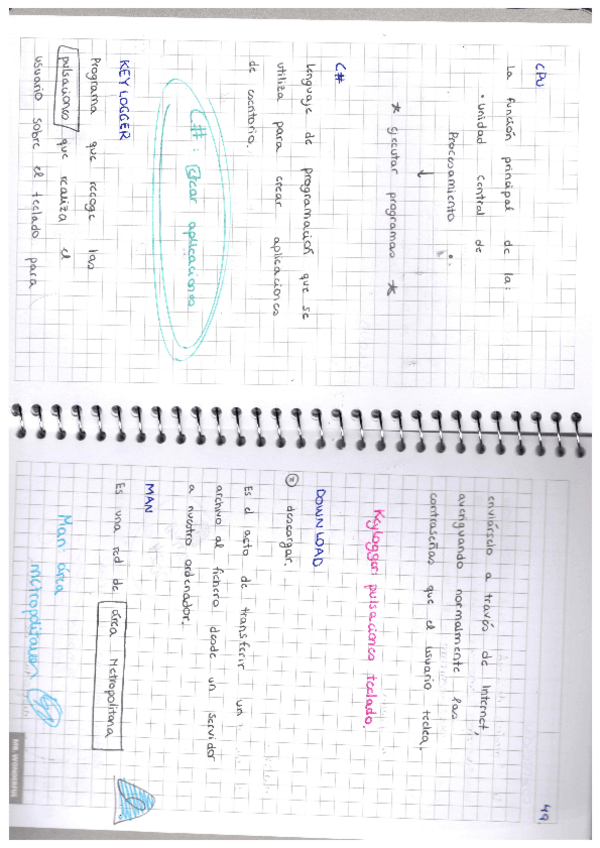 CPU
La función principal de la:
• unidad central de
Procesamiento •.
↓
* ejecutar programas *
C#
lenguaje de programación que se
utiliza para crear aplicaciones
de escritorio.
C# : Crear aplicaciones
KEYLOGGER
Programa que recoge las
pulsaciones que realiza el
usuario sobre el teclado para
49
enviárselo a través de Internet,
averiguando normalmente las
contraseñas que el usuario teclea.
Keylogger: pulsaciones teclado.
DOWNLOAD
descargar.
Es el acto de transferir un
archivo al fichero desde un servidor
a nuestro ordenador.
MAN
Es una red de área Metropolitana
Man área
metropolitana
MR. WONDERFUL